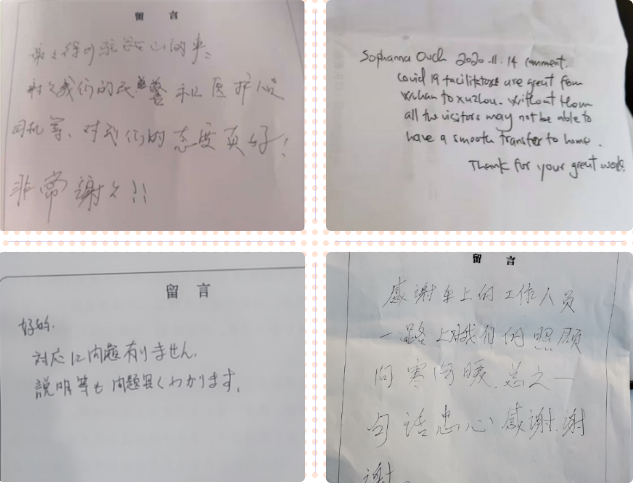 留 言
对我们的民警和医护人
司机等、对我们的态度真好！
非常谢谢!!
Sophanna Ouch 2020.11.14 comment.
Covid 19 facilitators are great from
wuhan to xuzhou. without them
all the visitors may not be able to
have a smooth transfer to home.
Thank for your great work.
留 言
好的.
対応に問題有りません.
説明等も問題なくわかります.
留 言
感谢车上的工作人员
一路上对我们的照顾
问寒问暖.总之一
句话忠心感谢.谢
谢.